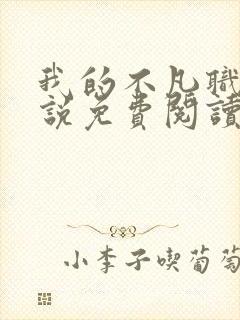 我的不凡職
說免費閱讀
小李子喫葡萄